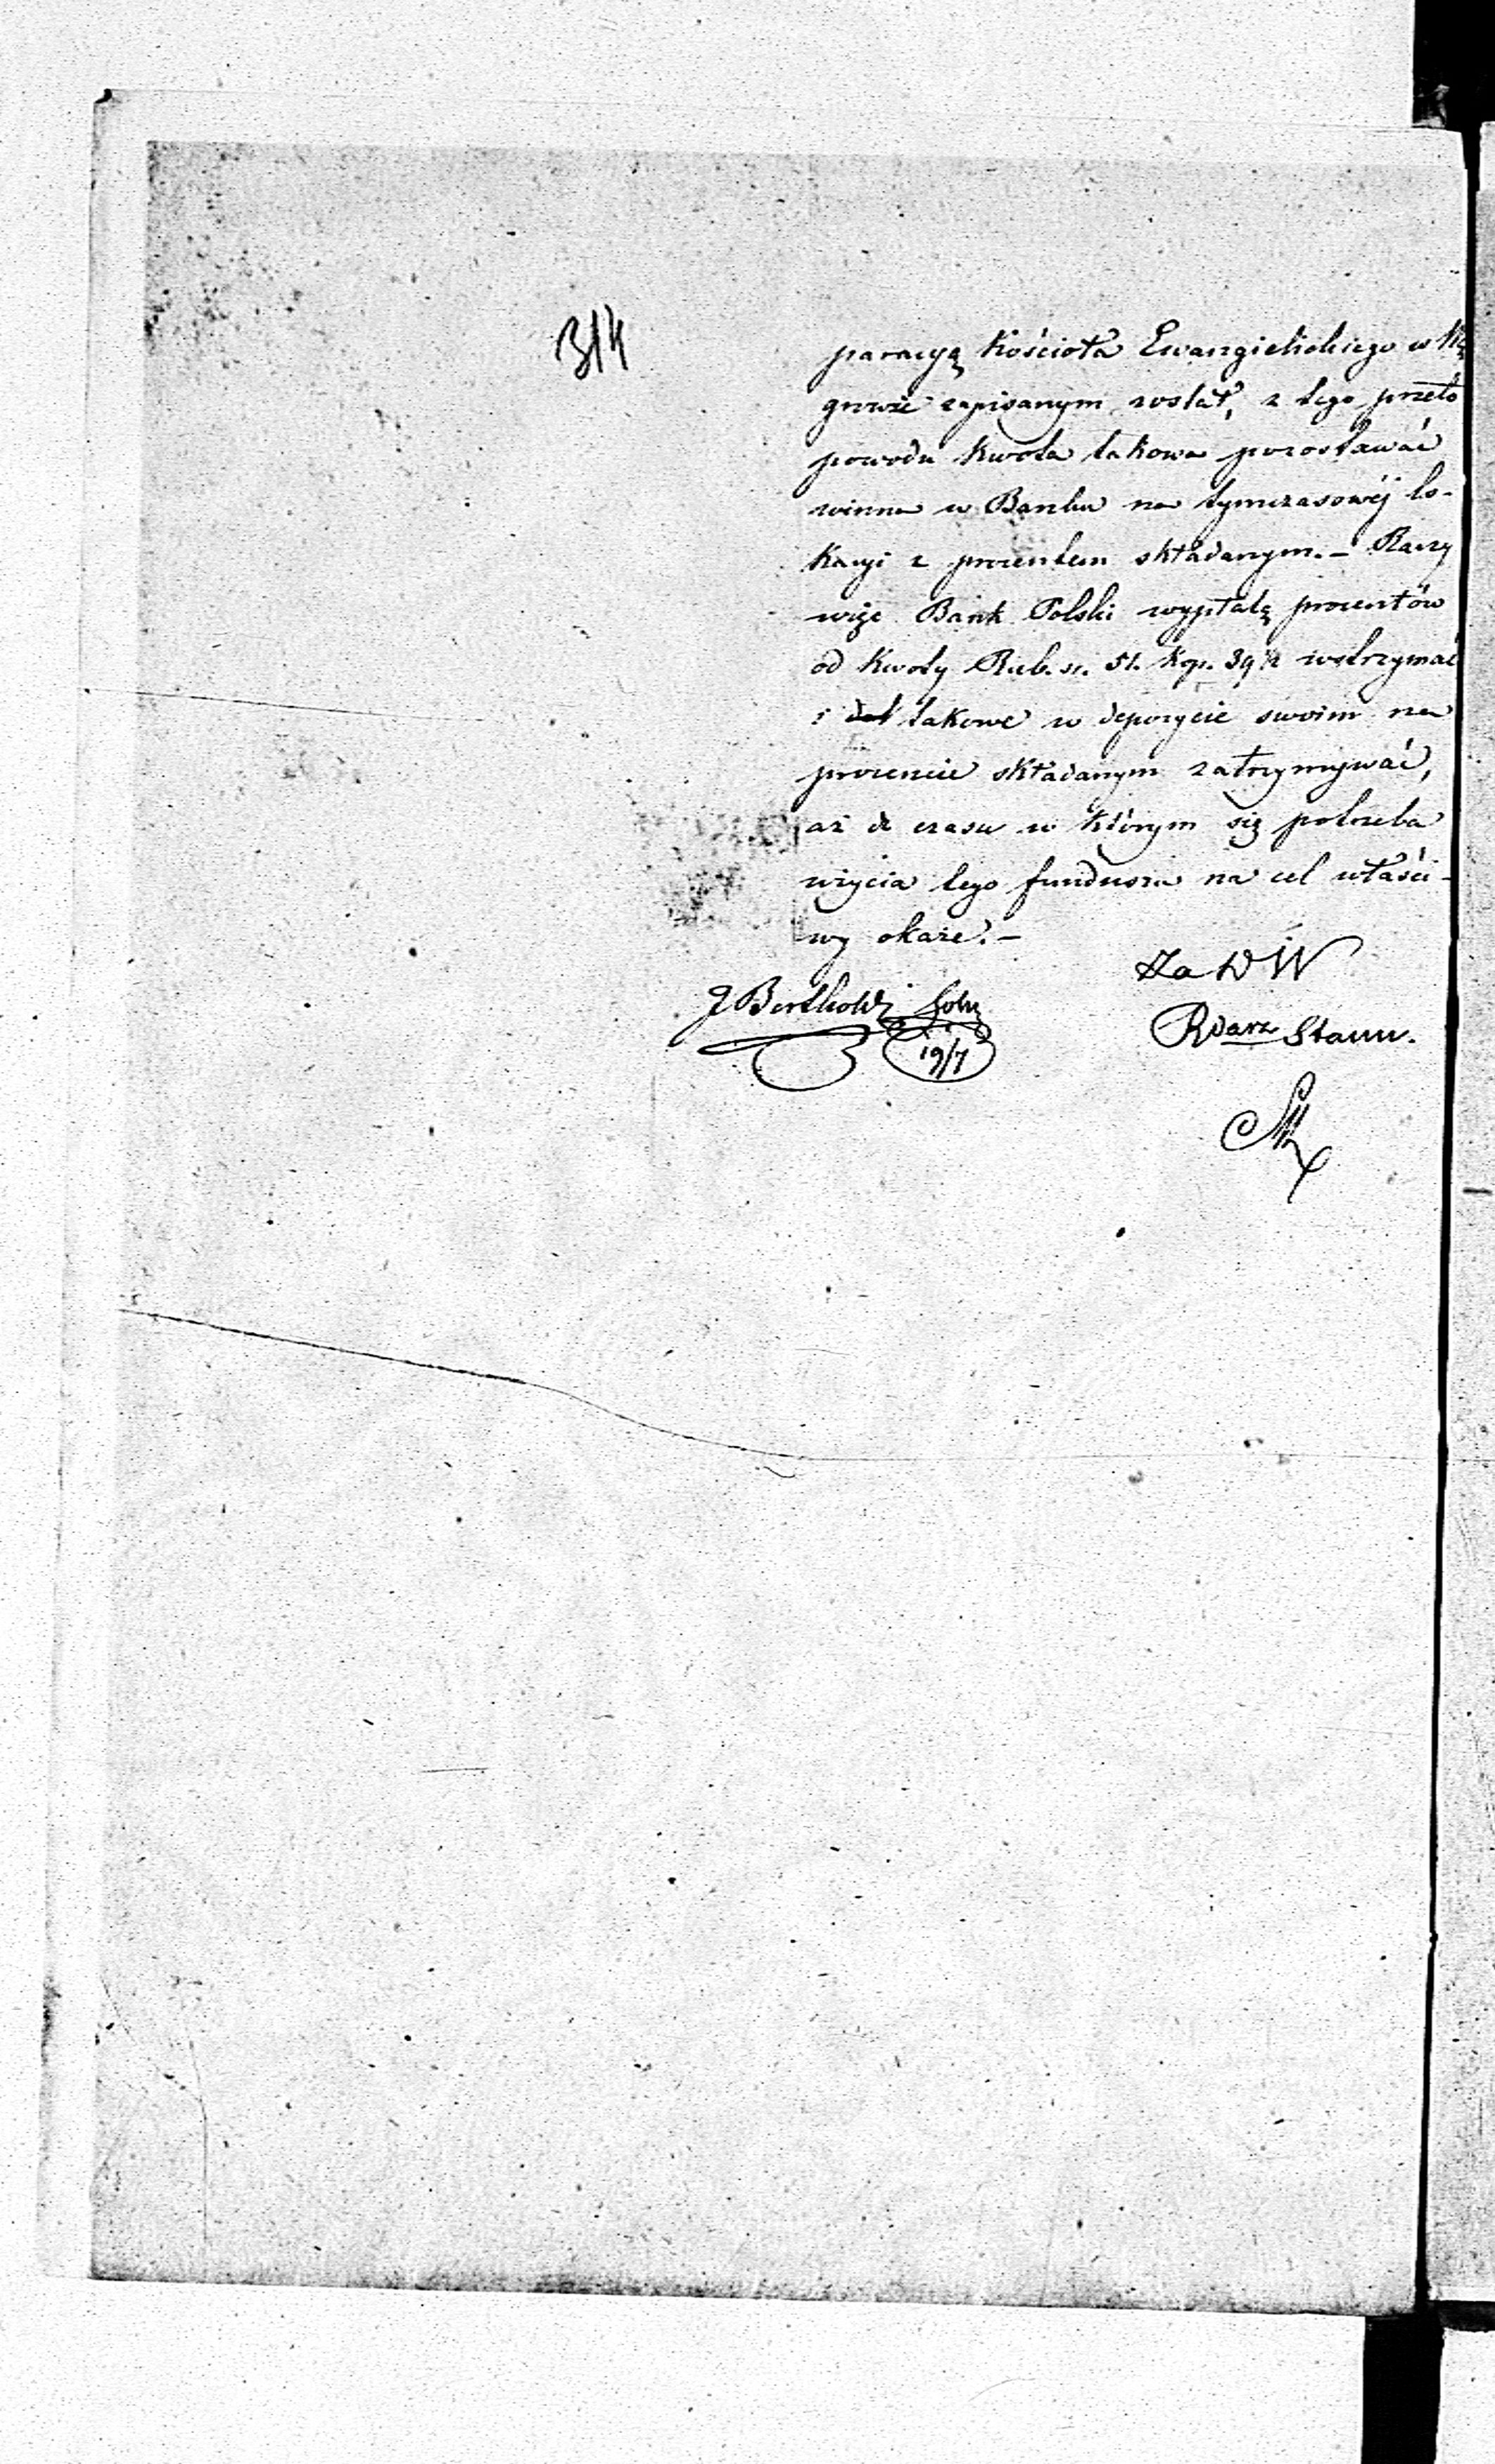 314
paracyą Kościoła Ewangielickiego w Wę
growie zapisanym został, z tego przeto
powodu kwota takowa pozostawać
winna w Banku na tymczasowéj lo-
kacyi z procentem składanym. – Raczy
więc Bank Polski wypłatę procentów
od kwoty Rub. sr. 51. kop. 39½ wstrzymać
i takowe w depozycie swoim na
procencie składanym zatrzymywać,
aż do czasu w którym się potrzeba
użycia tego funduszu na cel właści-
wy okaże. –
Za DW
J Berthold
Rdarz Stanu.
19/7